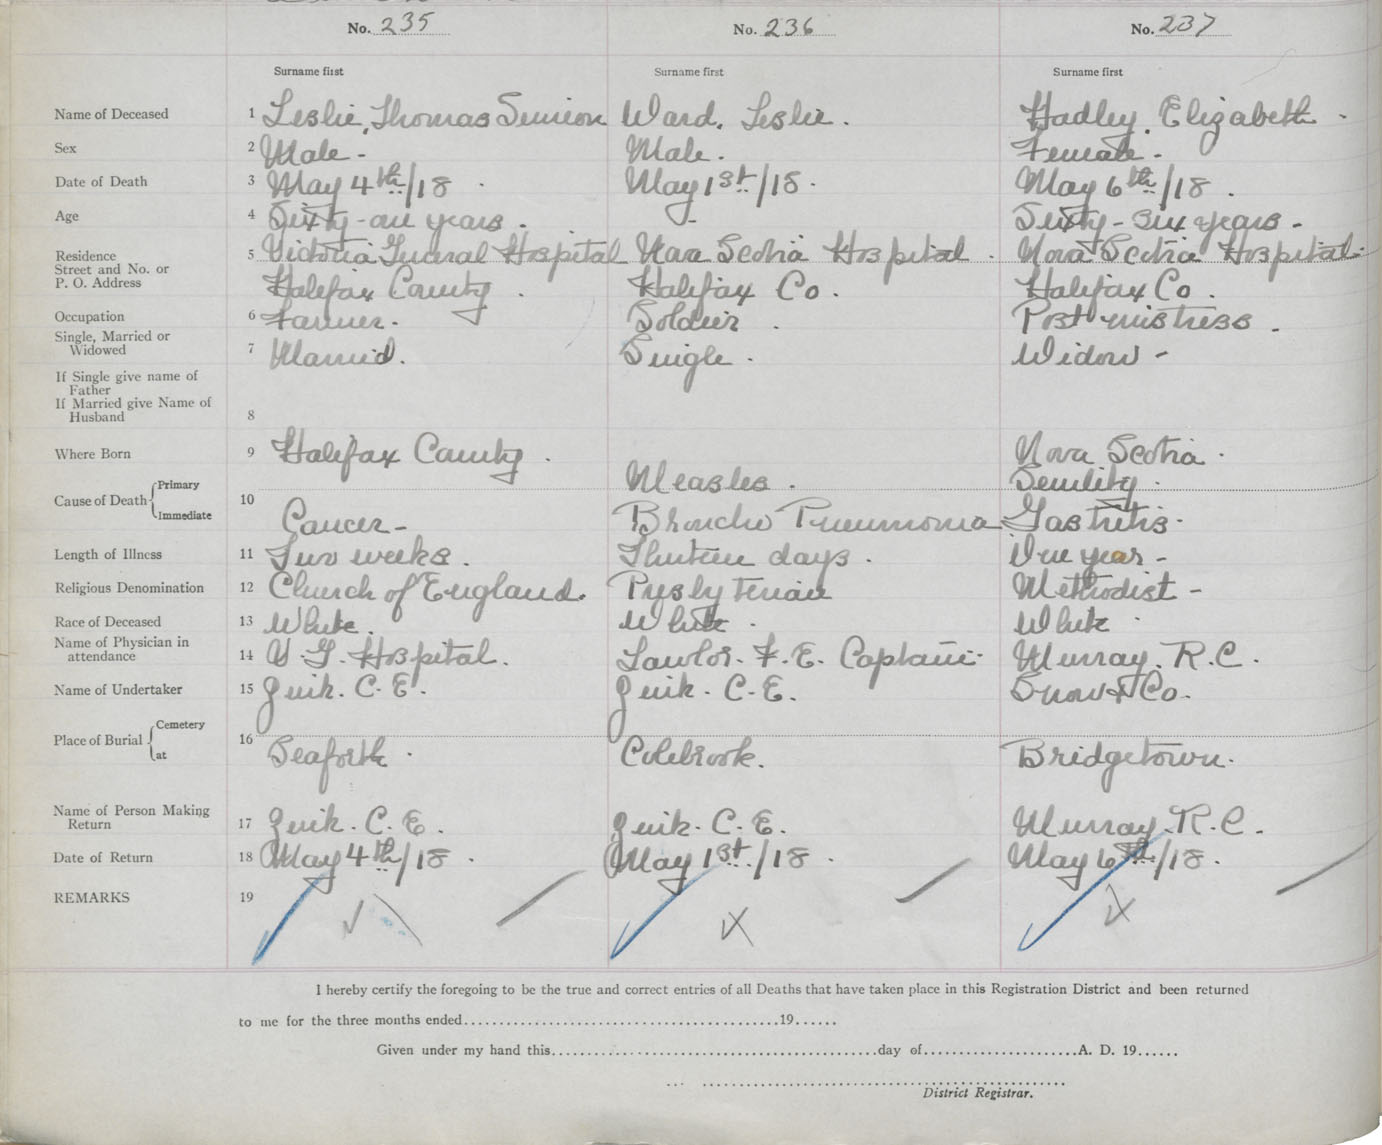 No. 235 No. 236 No. 237
Surname first Surname first Surname first
Name of Deceased 1 Leslie, Thomas Simeon Ward, Leslie. Hadley, Elizabeth.
Sex 2 Male- Male. Female-
Date of Death 3 May 4th/18. May 1st/18. May 6th/18.
Age 4 Sixty-one years. - Sixty-six years-
Residence 5 Victoria General Hospital Nova Scotia Hospital. Nova Scotia Hospital.
Street and No. or
P. O. Address Halifax County. Halifax Co. Halifax Co.
Occupation 6 Farmer. Soldier. Postmistress.
Single, Married or
Widowed 7 Married. Single. Widow-
If Single give name of
Father
If Married give Name of
Husband 8
Where Born 9 Halifax County. Nova Scotia.
Cause of Death Primary Measles. Senility.
10
Immediate Cancer- Broncho Pneumonia Gastritis.
Length of Illness 11 Two weeks. Thirteen days. One year-
Religious Denomination 12 Church of England. Presbyterian Methodist-
Race of Deceased 13 White. White. White.
Name of Physician in
attendance 14 V.G. Hospital. Lawlor. F.E. Captain. Murray. R.C.
Name of Undertaker 15 C.E. C.E. Snow & Co.
Place of Burial Cemetery
16
at Seaforth. Colebrook. Bridgetown.
Name of Person Making
Return 17 C.E. C.E. Murray. R.C.
Date of Return 18 May 4th/18. May 1st/18. May 6th/18.
REMARKS 19
I hereby certify the foregoing to be the true and correct entries of all Deaths that have taken place in this Registration District and been returned
to me for the three months ended 19......
Given under my hand this day of A. D. 19......
District Registrar.